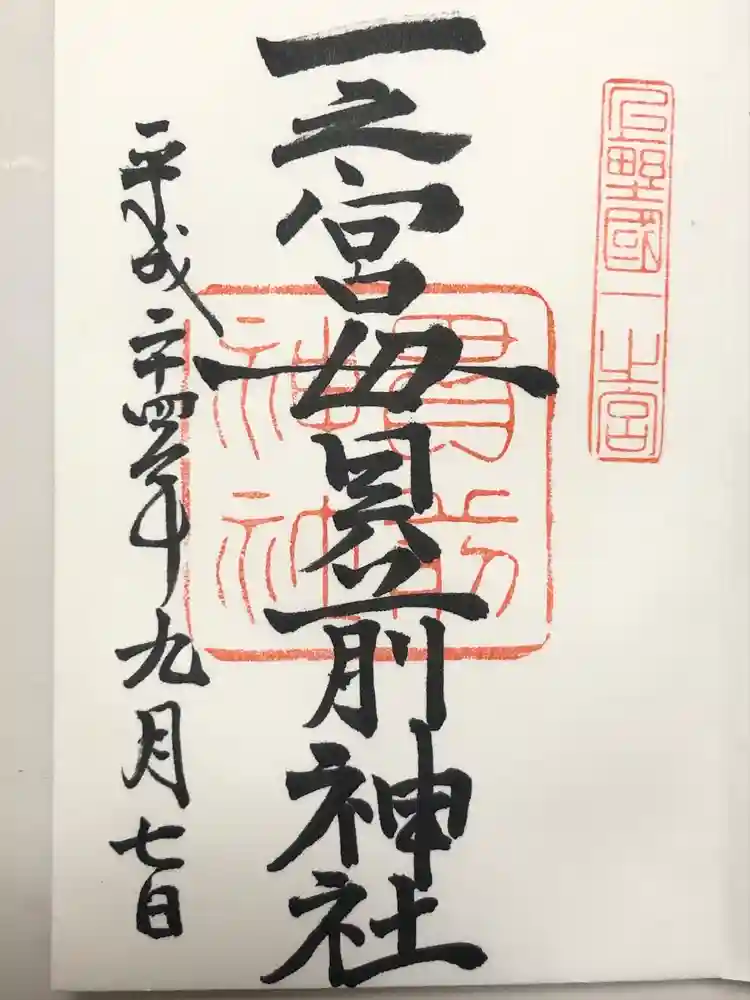 上野國一之宮
一之宮貫前神社
貫前
平成二十四年九月七日